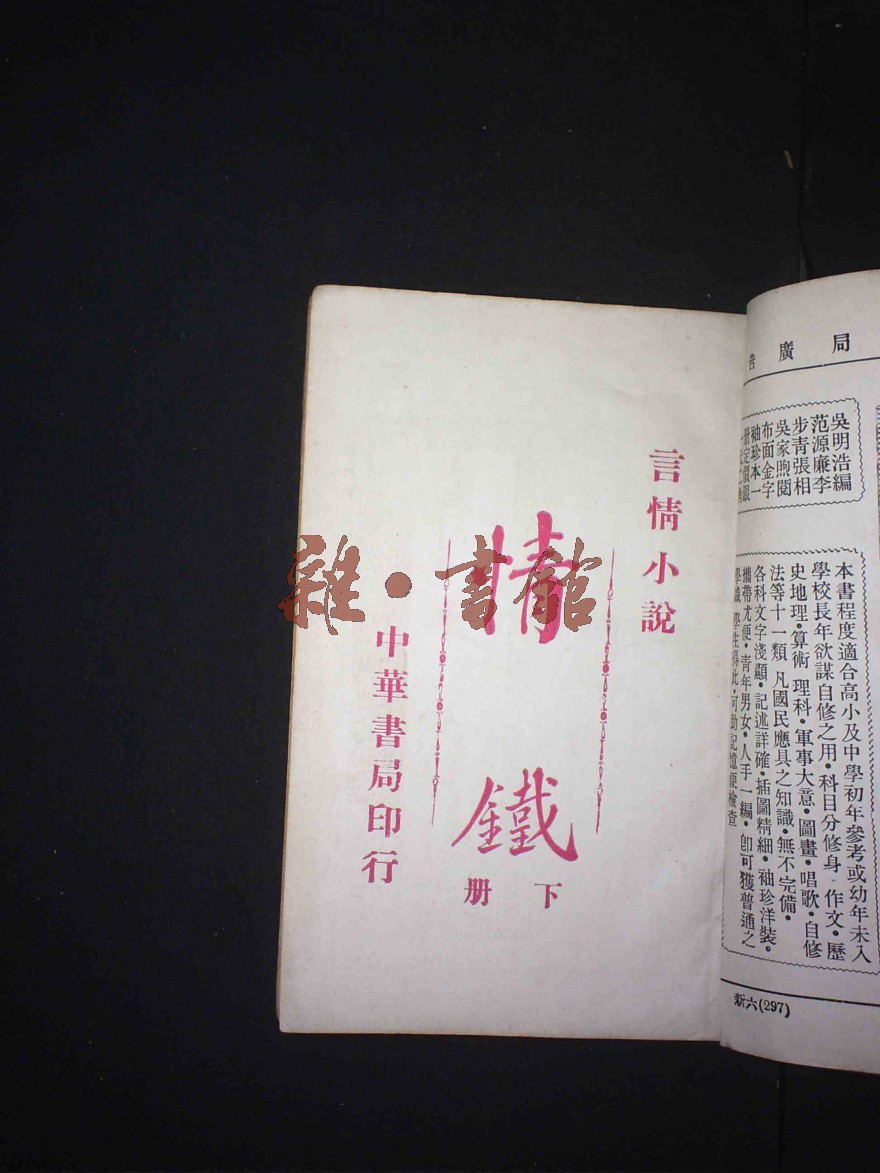 言情小說
情鐵
下册
中華書局印行
雜·書館
局廣告
吳明浩編
范源廉李
步青張相
吳家煦閱
布面金字
袖珍本一
册定價銀
本書程度適合高小及中學初年參考或幼年未入
學校長年欲謀自修之用·科目分修身·作文·歷
史地理·算術 理科·軍事大意·圖畫·唱歌·自修
法等十一類 凡國民應具之知識·無不完備·
各科文字淺顯·記述詳確·插圖精細·袖珍洋裝·
攜帶尤便·青年男女·人手一編·卽可獲普通之
學識 學生得此·可助記憶便檢查
新六(297)